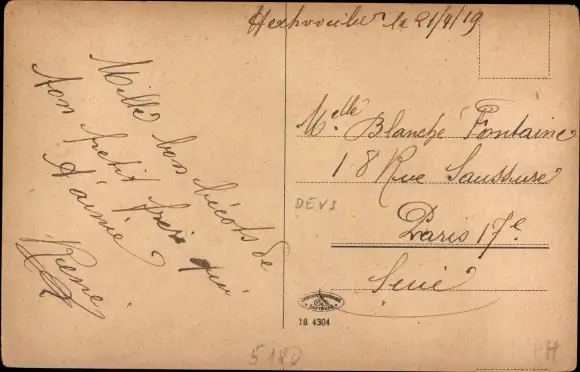 le 21/4/19
Mille bons bécots de
ton petit frère qui
t'aime
René
Melle Blanche Fontaine
18 Rue Saussure
Paris 17e
Seine
DEVS
18 4304
5180